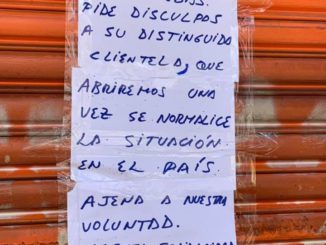 PIDE DISCULPAS
A SU DISTINGUIDA
CLIENTELA, QUE
ABRIREMOS UNA
VEZ SE NORMALICE
LA SITUACIÓN
EN EL PAÍS.
AJENA A NUESTRA
VOLUNTAD.